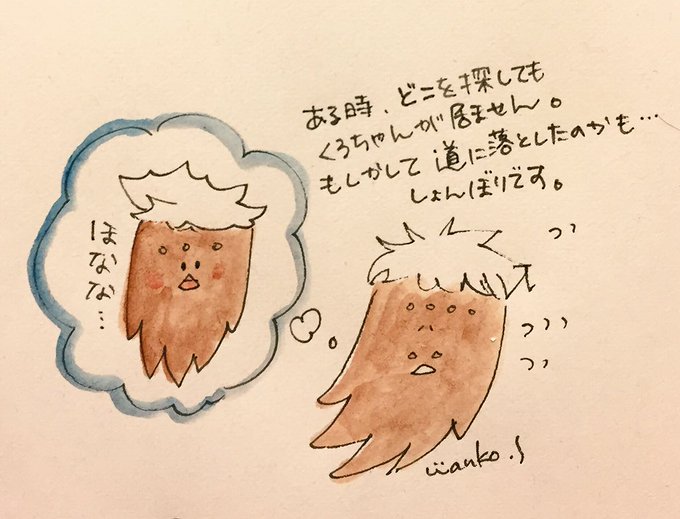 ある時、どこを探しても
くろちゃんが居ません。
もしかして道に落としたのかも…
しょんぼりです。
ほなな…